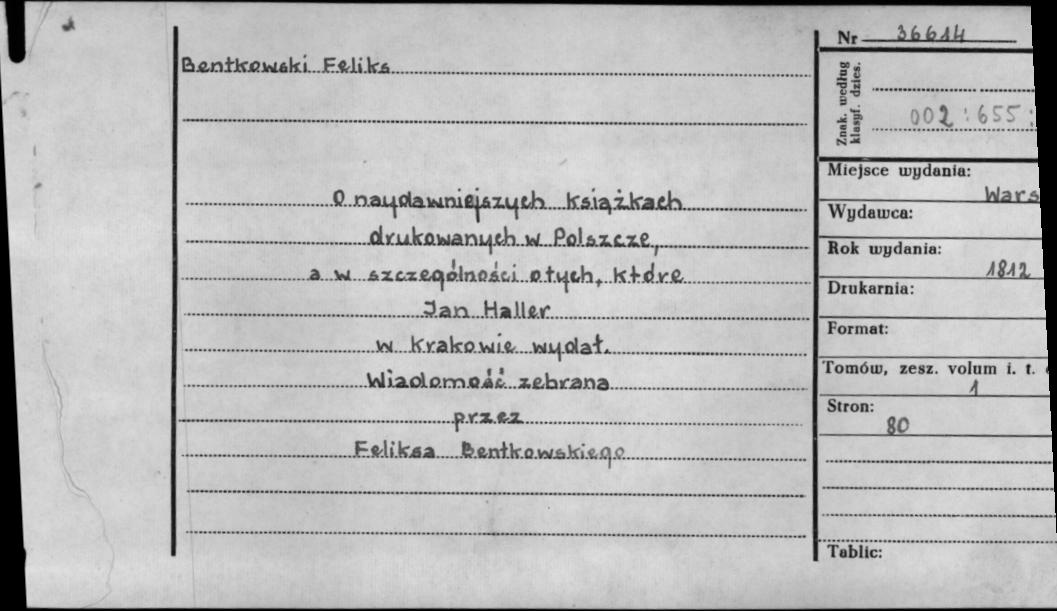 Bentkowski Feliks
O naydawniejszych książkach
drukowanych w Polszcze,
a w szczególności o tych, które
Jan Haller
w Krakowie wydał.
Wiadomość zebrana
przez
Feliksa Bentkowskiego
Nr 36614
Znak. według
klasyf. dzies.
002:655:
Miejsce wydania:
Wars
Wydawca:
Rok wydania:
1812
Drukarnia:
Format:
Tomów, zesz. volum i. t.
1
Stron:
80
Tablic: